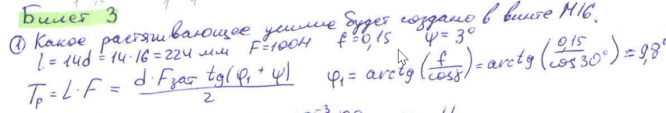 Билет 3
① Какое растягивающее усилие будет создано в винте М16.
l = 14d = 14·16 = 224 мм F=100Н f=0,15 ψ=3°
Tр = L·F = d·Fзат tg(φ₁+ψ) / 2 φ₁ = arctg(f/cosγ) = arctg(0,15/cos30°) = 9,8°